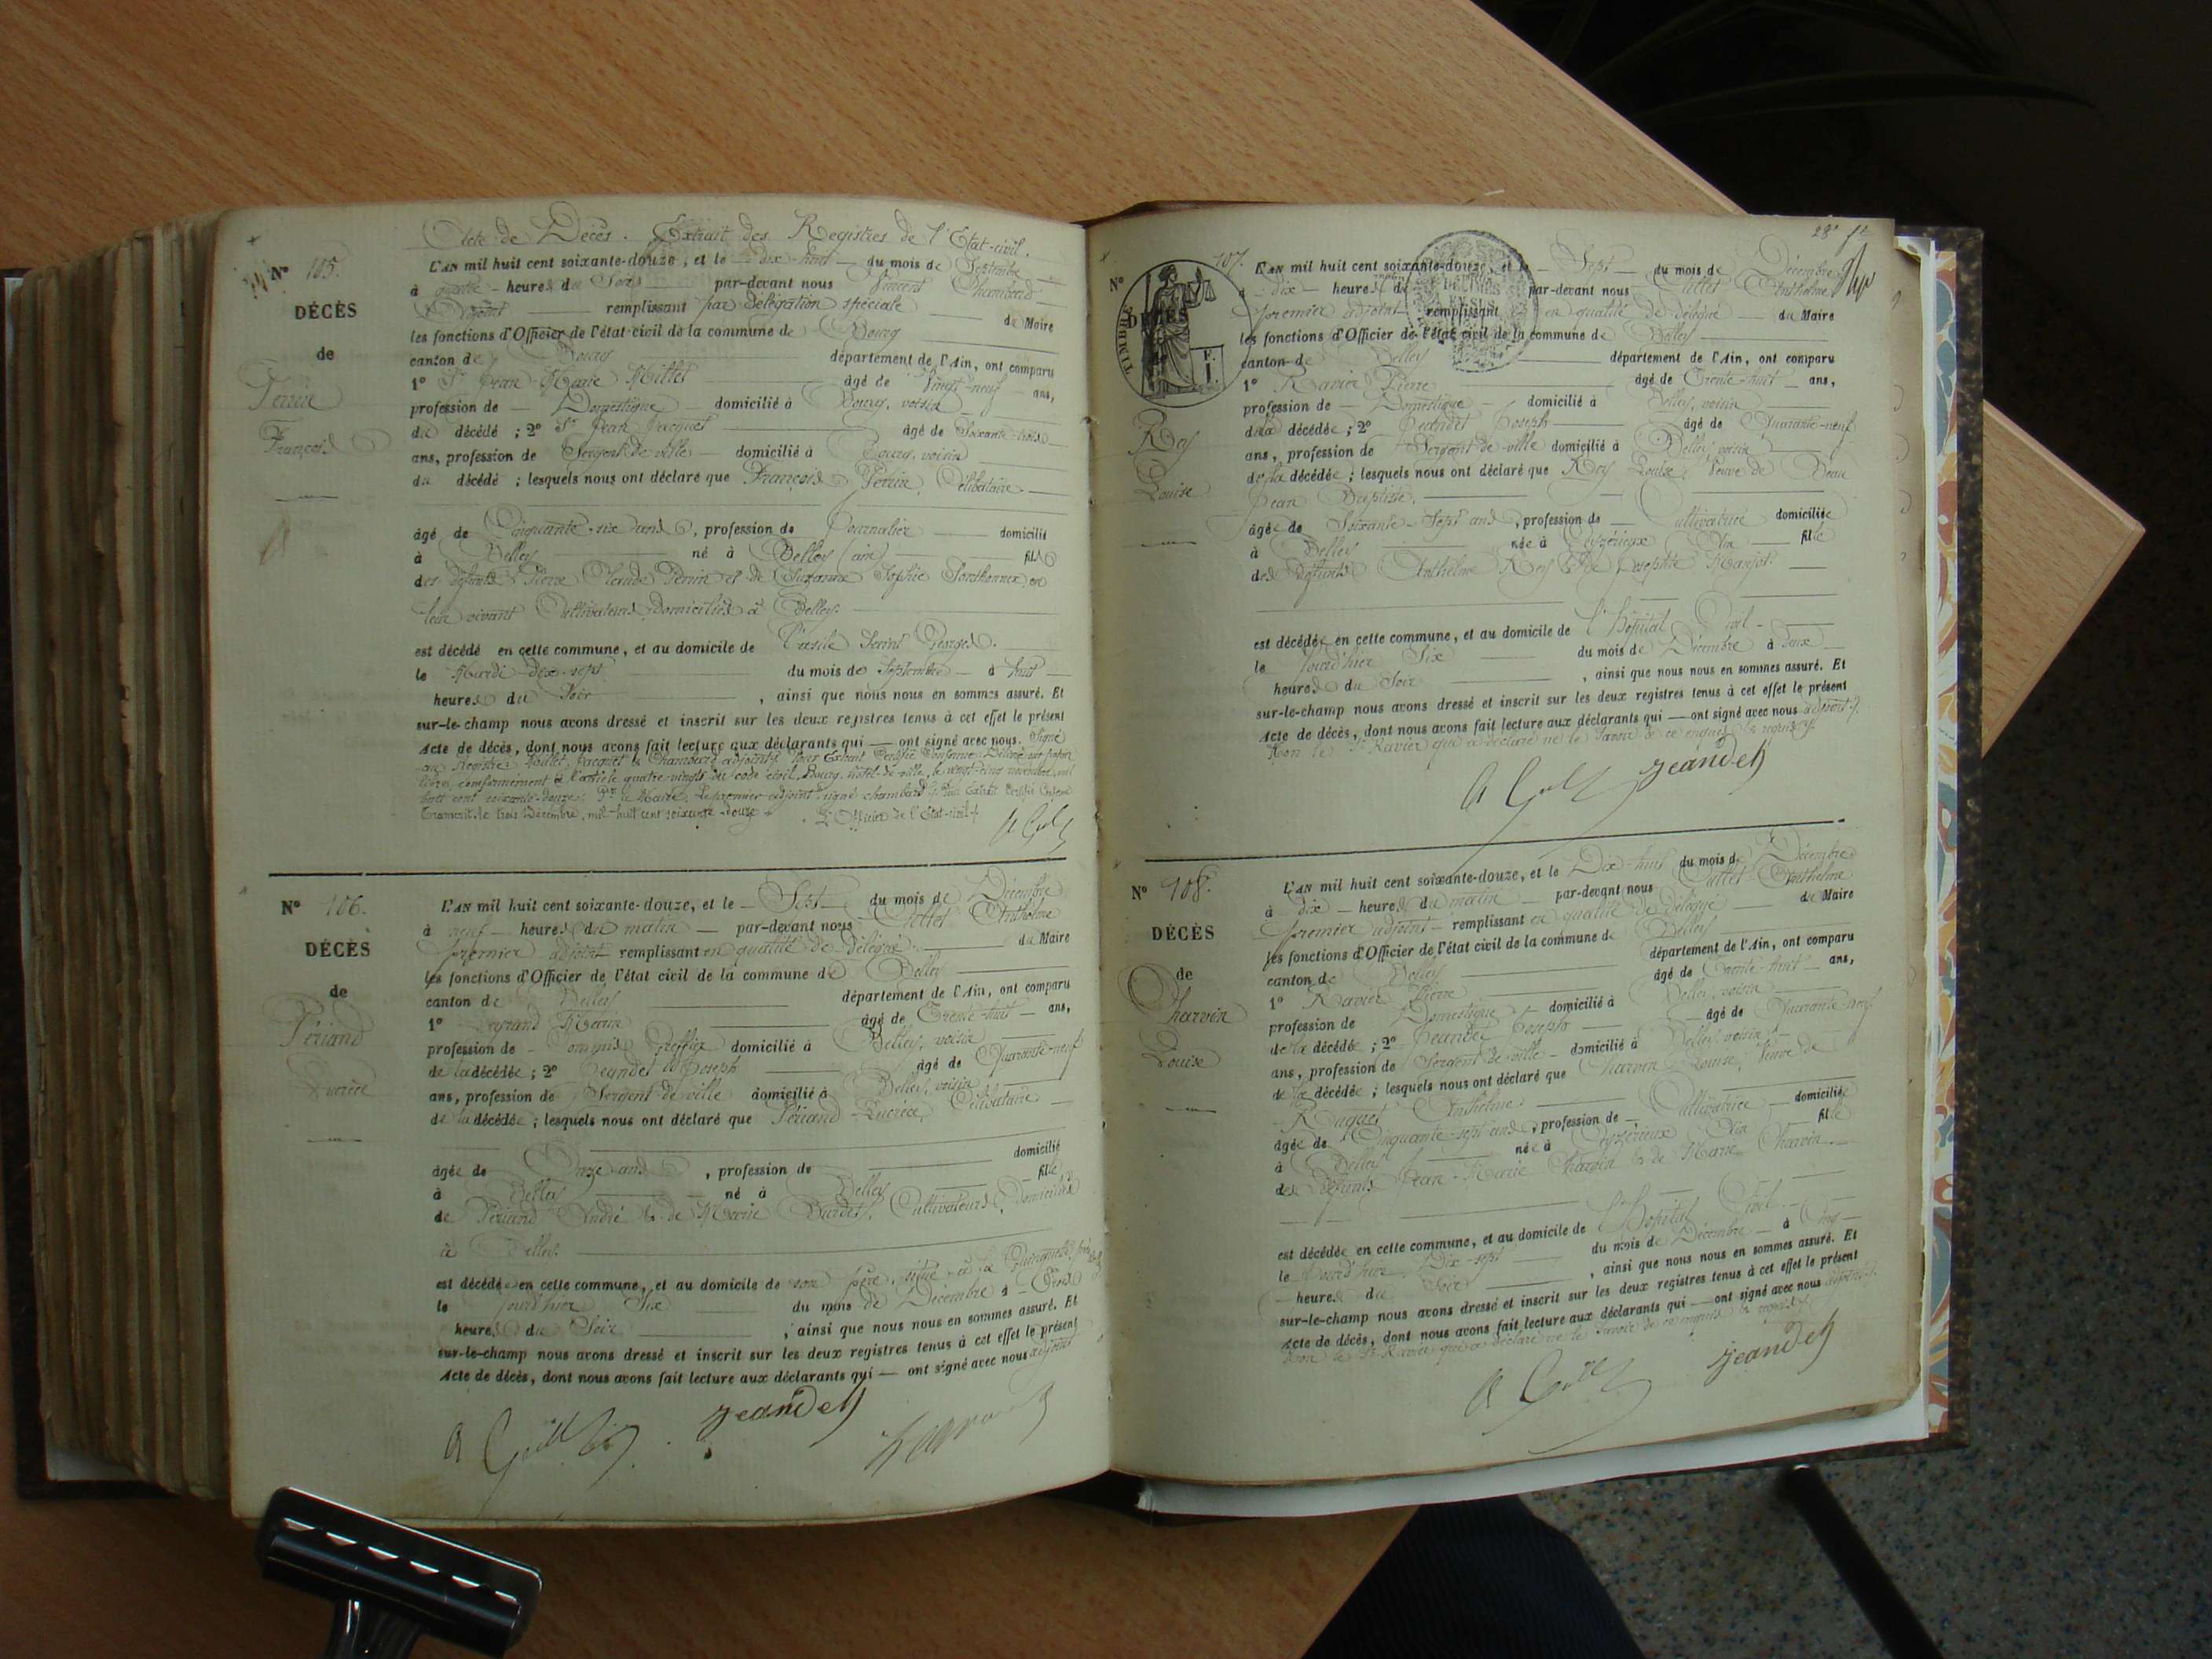 Acte de Décès. Extrait des Registres de l'Etat-civil.
N° 105.
DÉCÈS
de
Perrin
François
L'AN mil huit cent soixante-douze, et le dix-huit du mois de Septembre
à quatre heures du Soir par-devant nous Vincent Chambard
Adjoint remplissant par délégation spéciale du Maire
les fonctions d'Officier de l'état civil de la commune de Bourg
canton de Bourg département de l'Ain, ont comparu
1° Sr Jean-Marie Millet âgé de vingt-neuf ans,
profession de Domestique domicilié à Bourg, voisin
du décédé ; 2° Sr Jean Jacquet âgé de Soixante-trois
ans, profession de Sergent de ville domicilié à Bourg, voisin
du décédé ; lesquels nous ont déclaré que François Perrin, Célibataire
âgé de Cinquante-six ans, profession de Journalier domicilié
à Belley né à Belley (ain) fils
des défunts Pierre Claude Perrin et de Suzanne Sophie en
leur vivant Cultivateurs, Domiciliés à Belley.
est décédé en cette commune, et au domicile de l'asile Saint Georges.
le Mardi dix-sept du mois de Septembre à huit
heures du Soir, ainsi que nous nous en sommes assuré. Et
sur-le-champ nous avons dressé et inscrit sur les deux registres tenus à cet effet le présent
Acte de décès, dont nous avons fait lecture aux déclarants qui — ont signé avec nous. Signé
au Registre: Millet, Jacquet & Chambard adjoint. Pour Extrait Certifié Conforme Délivré sur papier
libre, conformément à l'article quatre-vingts du code civil. Bourg, hôtel-de-ville, le vingt-cinq novembre mil
huit cent soixante-douze. Pr le Maire, le premier adjoint signé chambard. Pour Extrait Certifié Conforme
Transcrit le trois Décembre, mil-huit cent soixante-douze. L'Officier de l'Etat-civil
N° 106.
DÉCÈS
de
Périand
Lucrèce
L'AN mil huit cent soixante-douze, et le Sept du mois de Décembre
à neuf heures du matin par-devant nous Anthelme
premier adjoint remplissant en qualité de délégué du Maire
les fonctions d'Officier de l'état civil de la commune de Belley
canton de Belley département de l'Ain, ont comparu
1° Legrand âgé de Trente-huit ans,
profession de Commis Greffier domicilié à Belley, voisin
de la décédée ; 2° Jeandet Joseph âgé de Quarante-neuf
ans, profession de Sergent de ville domicilié à Belley, voisin
de la décédée ; lesquels nous ont déclaré que Périand Lucrèce, Célibataire
âgée de Onze ans, profession de domicilié
à Belley né à Belley fille
de Périand André & de Marie Cultivateurs, Domiciliés
à Belley.
est décédée en cette commune, et au domicile de son père, situé
le jourd'hier Six du mois de Décembre à Trois
heures du Soir, ainsi que nous nous en sommes assuré. Et
sur-le-champ nous avons dressé et inscrit sur les deux registres tenus à cet effet le présent
Acte de décès, dont nous avons fait lecture aux déclarants qui — ont signé avec nous adjoint
Jeandet
23e ft
TIMBRE
N° 107.
DÉCÈS
de
Rey
Louise
L'AN mil huit cent soixante-douze, et le Sept du mois de Décembre
à dix heures du matin par-devant nous Anthelme
premier adjoint remplissant en qualité de délégué du Maire
les fonctions d'Officier de l'état civil de la commune de Belley
canton de Belley département de l'Ain, ont comparu
1° Ravier Pierre âgé de Trente-huit ans,
profession de Domestique domicilié à Belley, voisin
de la décédée ; 2° Jeandet Joseph âgé de Quarante-neuf
ans, profession de Sergent de ville domicilié à Belley, voisin
de la décédée ; lesquels nous ont déclaré que Rey Louise, Veuve de Beau
Jean Baptiste,
âgée de Soixante-Sept ans, profession de Cultivatrice domiciliée
à Belley née à Peyzérieux Ain fille
des Défunts Anthelme Rey & de Josephte
est décédée en cette commune, et au domicile de l'hôpital Civil
le jourd'hier Six du mois de Décembre à Deux
heures du Soir, ainsi que nous nous en sommes assuré. Et
sur-le-champ nous avons dressé et inscrit sur les deux registres tenus à cet effet le présent
Acte de décès, dont nous avons fait lecture aux déclarants qui — ont signé avec nous adjoint
non le Sr Ravier qui a déclaré ne le savoir de ce enquis & requis
Jeandet
N° 108.
DÉCÈS
de
Charvin
Louise
L'AN mil huit cent soixante-douze, et le Dix-huit du mois de Décembre
à dix heures du matin par-devant nous Anthelme
premier adjoint remplissant en qualité de délégué du Maire
les fonctions d'Officier de l'état civil de la commune de Belley
canton de Belley département de l'Ain, ont comparu
1° Ravier Pierre âgé de Trente-huit ans,
profession de Domestique domicilié à Belley, voisin
de la décédée ; 2° Jeandet Joseph âgé de Quarante-neuf
ans, profession de Sergent de ville domicilié à Belley, voisin
de la décédée ; lesquels nous ont déclaré que Charvin Louise, Veuve de
Anthelme
âgée de Cinquante-sept ans, profession de Cultivatrice domiciliée
à Belley née à Peyzérieux Ain fille
des Défunts Jean-Marie Charvin & de Marie Charvin
est décédée en cette commune, et au domicile de l'hôpital Civil
le jourd'hier Dix-sept du mois de Décembre à Cinq
heures du Soir, ainsi que nous nous en sommes assuré. Et
sur-le-champ nous avons dressé et inscrit sur les deux registres tenus à cet effet le présent
Acte de décès, dont nous avons fait lecture aux déclarants qui — ont signé avec nous adjoint
non le Sr Ravier qui a déclaré ne le savoir de ce enquis & requis
Jeandet